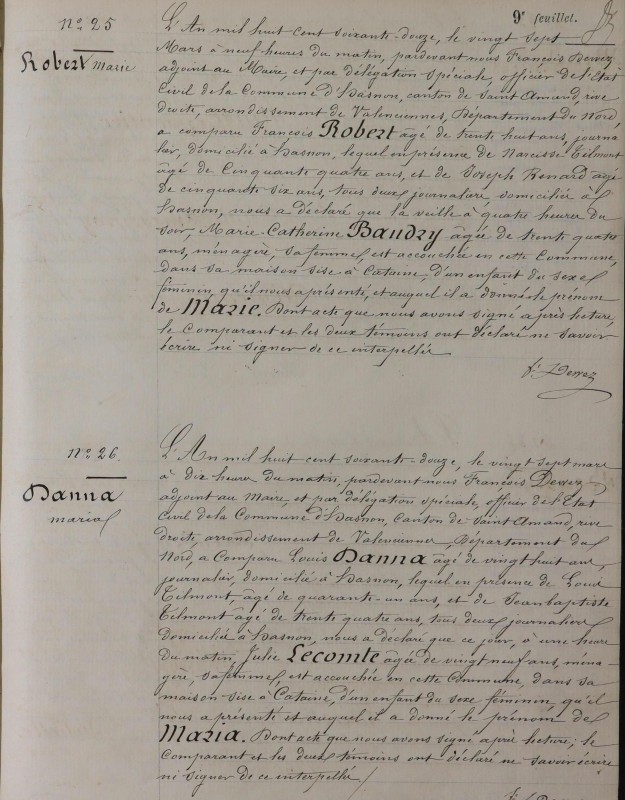 9e feuillet.
N° 25
Robert Marie
L'An mil huit cent soixante-douze, le vingt sept
Mars à neuf heures du matin, pardevant nous François Dewez
adjoint au Maire, et par délégation spéciale, officier de l'Etat
Civil de la Commune d'Hasnon, canton de Saint Amand, rive
droite, arrondissement de Valenciennes, Département du Nord,
a comparu François Robert âgé de trente huit ans, journa
lier, domicilié à hasnon, lequel en présence de Narcisse Tilmont
âgé de Cinquante quatre ans, et de Joseph Renard âgé
de cinquante six ans, tous deux journaliers, domiciliés à
hasnon, nous a déclaré que la veille à quatre heures du
soir, Marie-Catherine Baudry âgée de trente quatre
ans, ménagère, sa femme, est accouchée en cette Commune,
dans sa maison sise à Cataine, d'un enfant du sexe
féminin, qu'il nous a présenté, et auquel il a donné le prénom
de Marie. Dont acte que nous avons signé après lecture,
le Comparant et les deux témoins ont déclaré ne savoir
écrire ni signer de ce interpellés
f. Dewez
N° 26.
Danna
maria
L'An mil huit cent soixante-douze, le vingt sept mars
à dix heures du matin, pardevant nous François Dewez
adjoint au Maire, et par délégation spéciale, officier de l'Etat
Civil de la Commune d'Hasnon, Canton de Saint Amand, rive
droite, arrondissement de Valenciennes, Département du
Nord, a Comparu Louis Danna âgé de vingt huit ans,
journalier, domicilié à hasnon, lequel en présence de Louis
Tilmont, âgé de quarante-un ans, et de Jean baptiste
Tilmont âgé de trente quatre ans, tous deux journaliers
domiciliés à hasnon, nous a déclaré que ce jour, à une heure
du matin, Julie Lecomte âgée de vingt neuf ans, ména-
gère, sa femme, est accouchée en cette Commune, dans sa
maison sise à Cataine, d'un enfant du sexe féminin, qu'il
nous a présenté et auquel il a donné le prénom de
Maria. Dont acte que nous avons signé après lecture; le
Comparant et les deux témoins ont déclaré ne savoir écrire
ni signer de ce interpellés